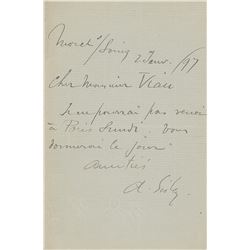 Moret s/Loing 2 Janv. /97
Cher Monsieur Viau
Je ne pourrai pas venir
à Paris Lundi. Vous
donnerai le jour
amitiés
A. Sisley